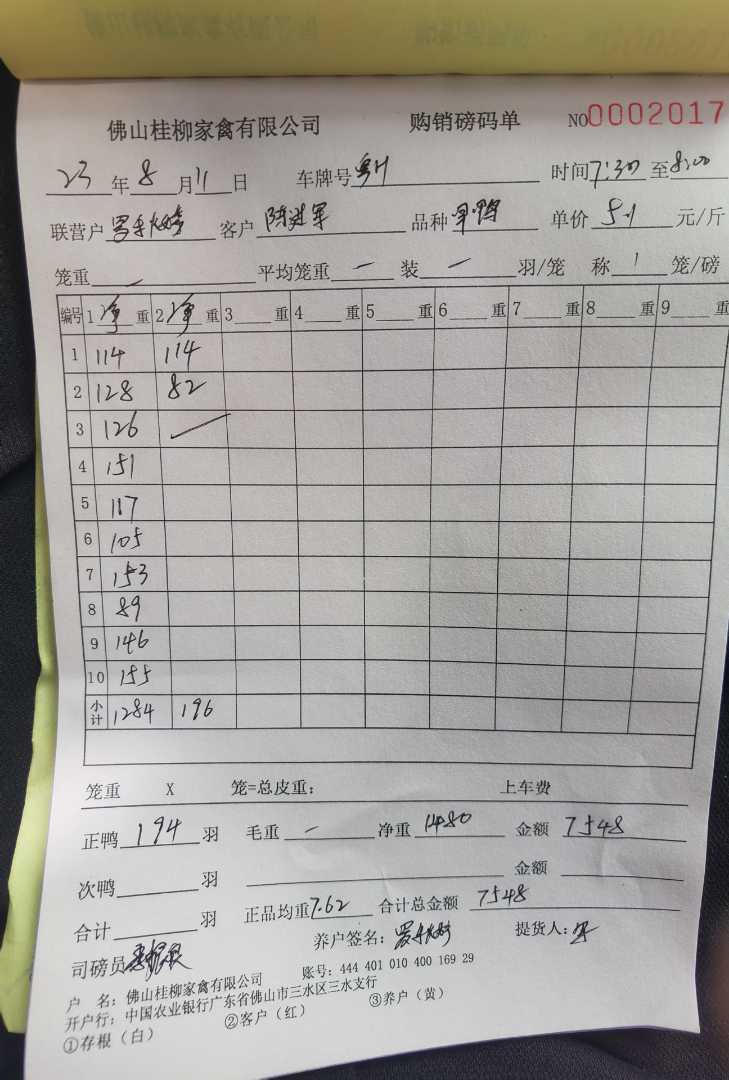 佛山桂柳家禽有限公司 购销磅码单 NO0002017
23年8月11日 车牌号 时间7:30至8:00
联营户 客户陈进军 品种 单价5.1元/斤
笼重— 平均笼重— 装—羽/笼 称1笼/磅
编号 1净重 2净重 3重 4重 5重 6重 7重 8重 9重
1 114 114
2 128 82
3 126
4 151
5 117
6 105
7 153
8 89
9 146
10 155
小计 1284 196
笼重 X 笼=总皮重: 上车费
正鸭194羽 毛重— 净重1480 金额7548
次鸭 羽 金额
合计 羽 正品均重7.62 合计总金额7548
司磅员 养户签名: 提货人:
户 名: 佛山桂柳家禽有限公司 账号: 444 401 010 400 169 29
开户行: 中国农业银行广东省佛山市三水区三水支行
①存根(白) ②客户(红) ③养户(黄)